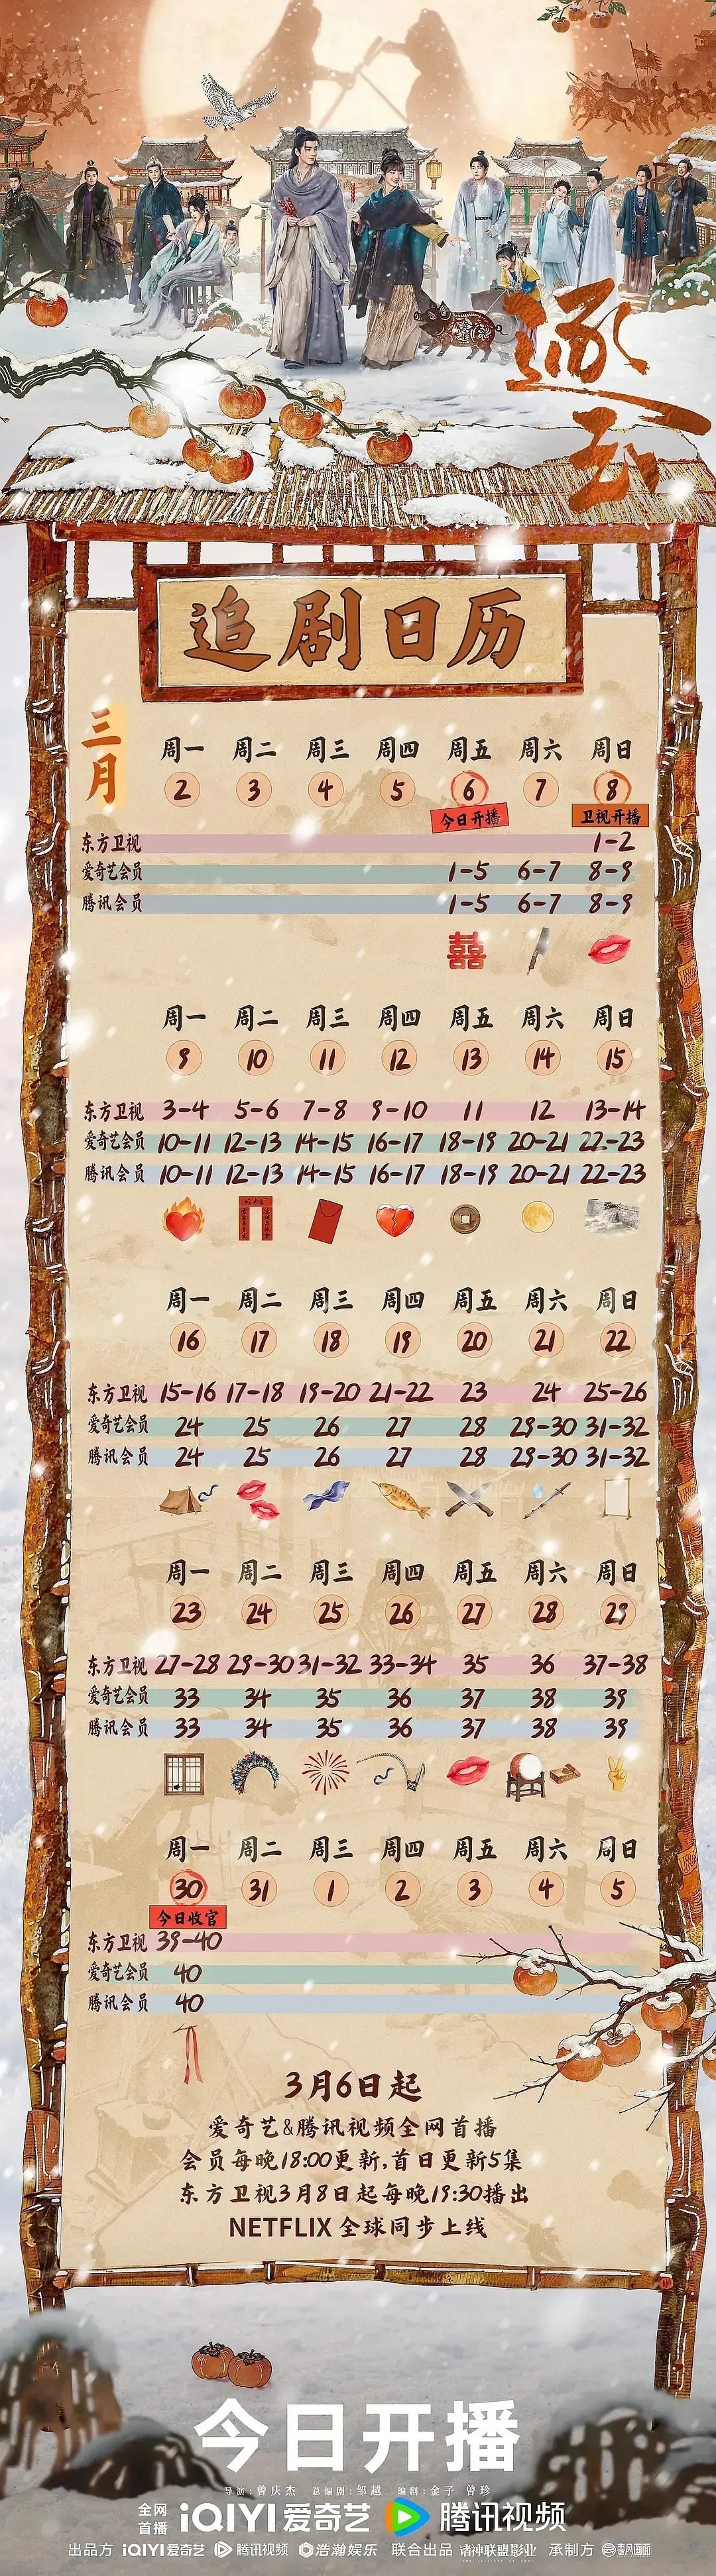 逐玉
追剧日历
三月
周一 周二 周三 周四 周五 周六 周日
2 3 4 5 6 7 8
今日开播 卫视开播
东方卫视 1-2
爱奇艺会员 1-5 6-7 8-9
腾讯会员 1-5 6-7 8-9
囍
周一 周二 周三 周四 周五 周六 周日
9 10 11 12 13 14 15
东方卫视 3-4 5-6 7-8 9-10 11 12 13-14
爱奇艺会员 10-11 12-13 14-15 16-17 18-19 20-21 22-23
腾讯会员 10-11 12-13 14-15 16-17 18-19 20-21 22-23
周一 周二 周三 周四 周五 周六 周日
16 17 18 19 20 21 22
东方卫视 15-16 17-18 19-20 21-22 23 24 25-26
爱奇艺会员 24 25 26 27 28 29-30 31-32
腾讯会员 24 25 26 27 28 29-30 31-32
周一 周二 周三 周四 周五 周六 周日
23 24 25 26 27 28 29
东方卫视 27-28 29-30 31-32 33-34 35 36 37-38
爱奇艺会员 33 34 35 36 37 38 39
腾讯会员 33 34 35 36 37 38 39
周一 周二 周三 周四 周五 周六 周日
30 31 1 2 3 4 5
今日收官
东方卫视 39-40
爱奇艺会员 40
腾讯会员 40
3月6日起
爱奇艺&腾讯视频全网首播
会员每晚18:00更新,首日更新5集
东方卫视3月8日起每晚19:30播出
NETFLIX 全球同步上线
今日开播
导演:曾庆杰 总编剧:邹越 编剧:金子 曾珍
全网首播 iQIYI爱奇艺 腾讯视频
出品方 iQIYI爱奇艺 腾讯视频 浩瀚娱乐 联合出品 诸神联盟影业 承制方 春风画面